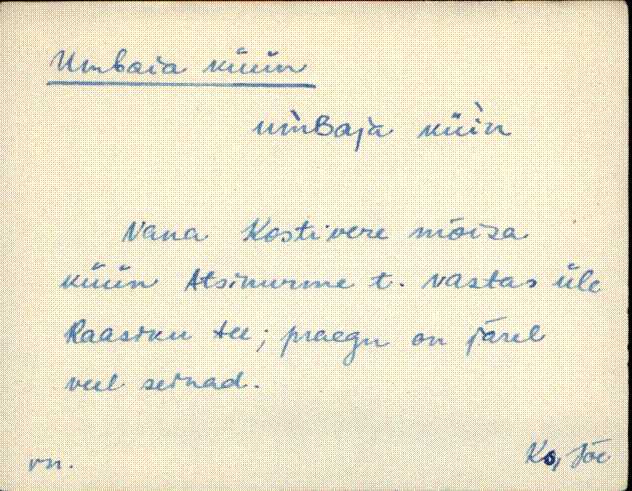 Umbaia küün
um̀Baja küìn
Vana Kostivere mõisa
küün Atsinurme t. vastas üle
Raasiku tee; praegu on järel
veel seinad.
vn.
Ko, Jõe